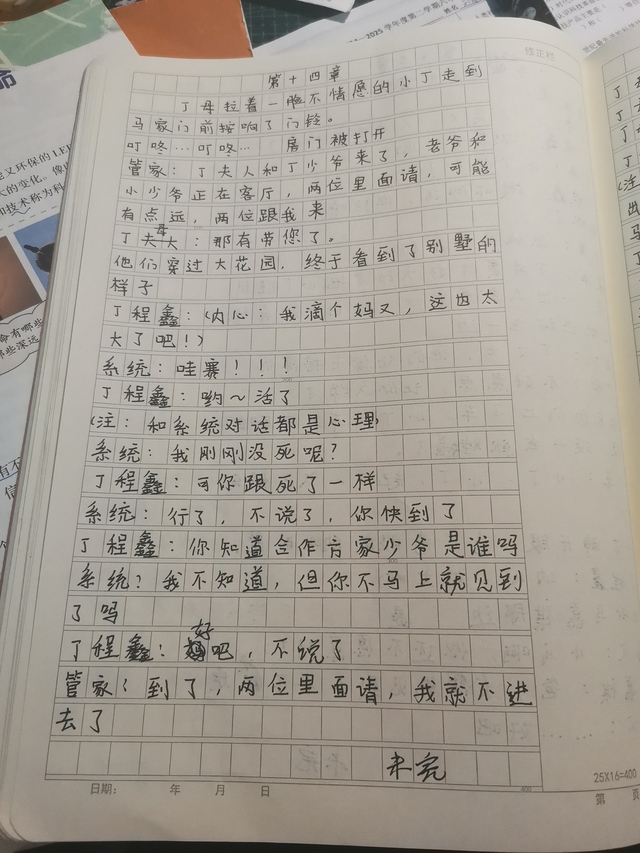 第十四章
丁母拉着一脸不情愿的小丁走到
马家门前按响了门铃。
叮咚…叮咚… 房门被打开
管家：丁夫人和丁少爷来了，老爷和
小少爷正在客厅，两位里面请，可能
有点远，两位跟我来
丁母：那有带您了。
他们穿过大花园，终于看到了别墅的
样子
丁程鑫：（内心：我滴个妈又，这也太
大了吧！）
系统：哇赛！！！
丁程鑫：哟～活了
（注：和系统对话都是心理）
系统：我刚刚没死呢？
丁程鑫：可你跟死了一样
系统：行了，不说了，你快到了
丁程鑫：你知道合作方家少爷是谁吗
系统？我不知道，但你不马上就见到
了吗
丁程鑫：好吧，不说了
管家：到了，两位里面请，我就不进
去了
未完
日期： 年 月 日
25X16=400
第 页
修正栏